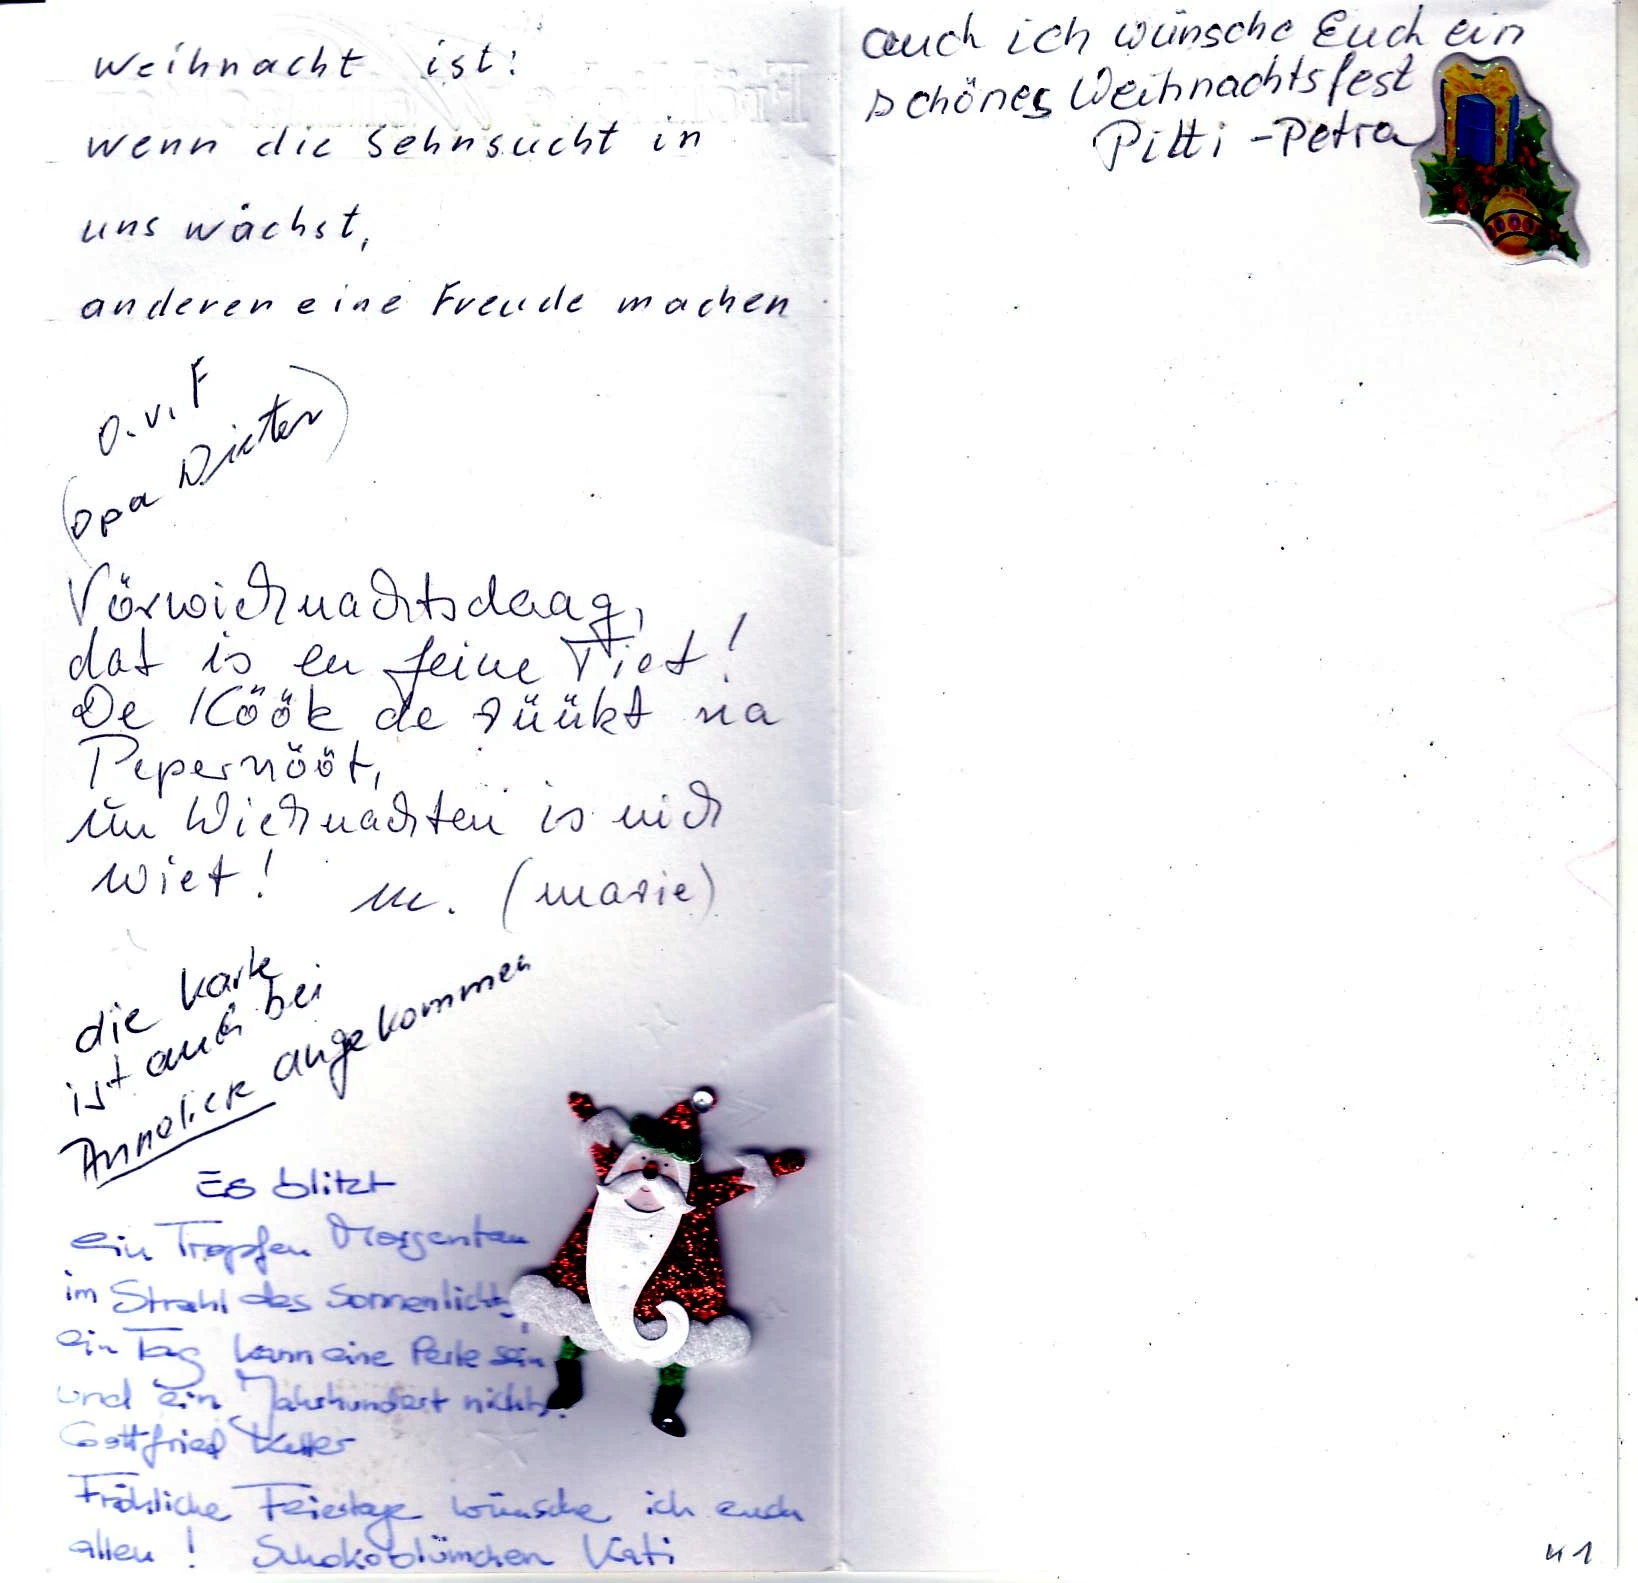 Weihnacht ist:
wenn die Sehnsucht in
uns wächst,
anderen eine Freude machen
O.v.F
(Opa Dieter)
Vörwiehnachtsdaag,
dat is en feine Tiet!
De Köök de rüükt na
Pepernööt,
un Wiehnachten is nich
wiet!
M. (Marie)
die Karte
ist auch bei
Annelick angekommen
Es blitzt
ein Tropfen Morgentau
im Strahl des Sonnenlichts,
ein Tag kann eine Perle sein
und ein Jahrhundert nichts.
Gottfried Keller
Fröhliche Feiertage wünsche ich euch
allen! Schokoblümchen Kati
auch ich wünsche Euch ein
schönes Weihnachtsfest
Pitti-Petra